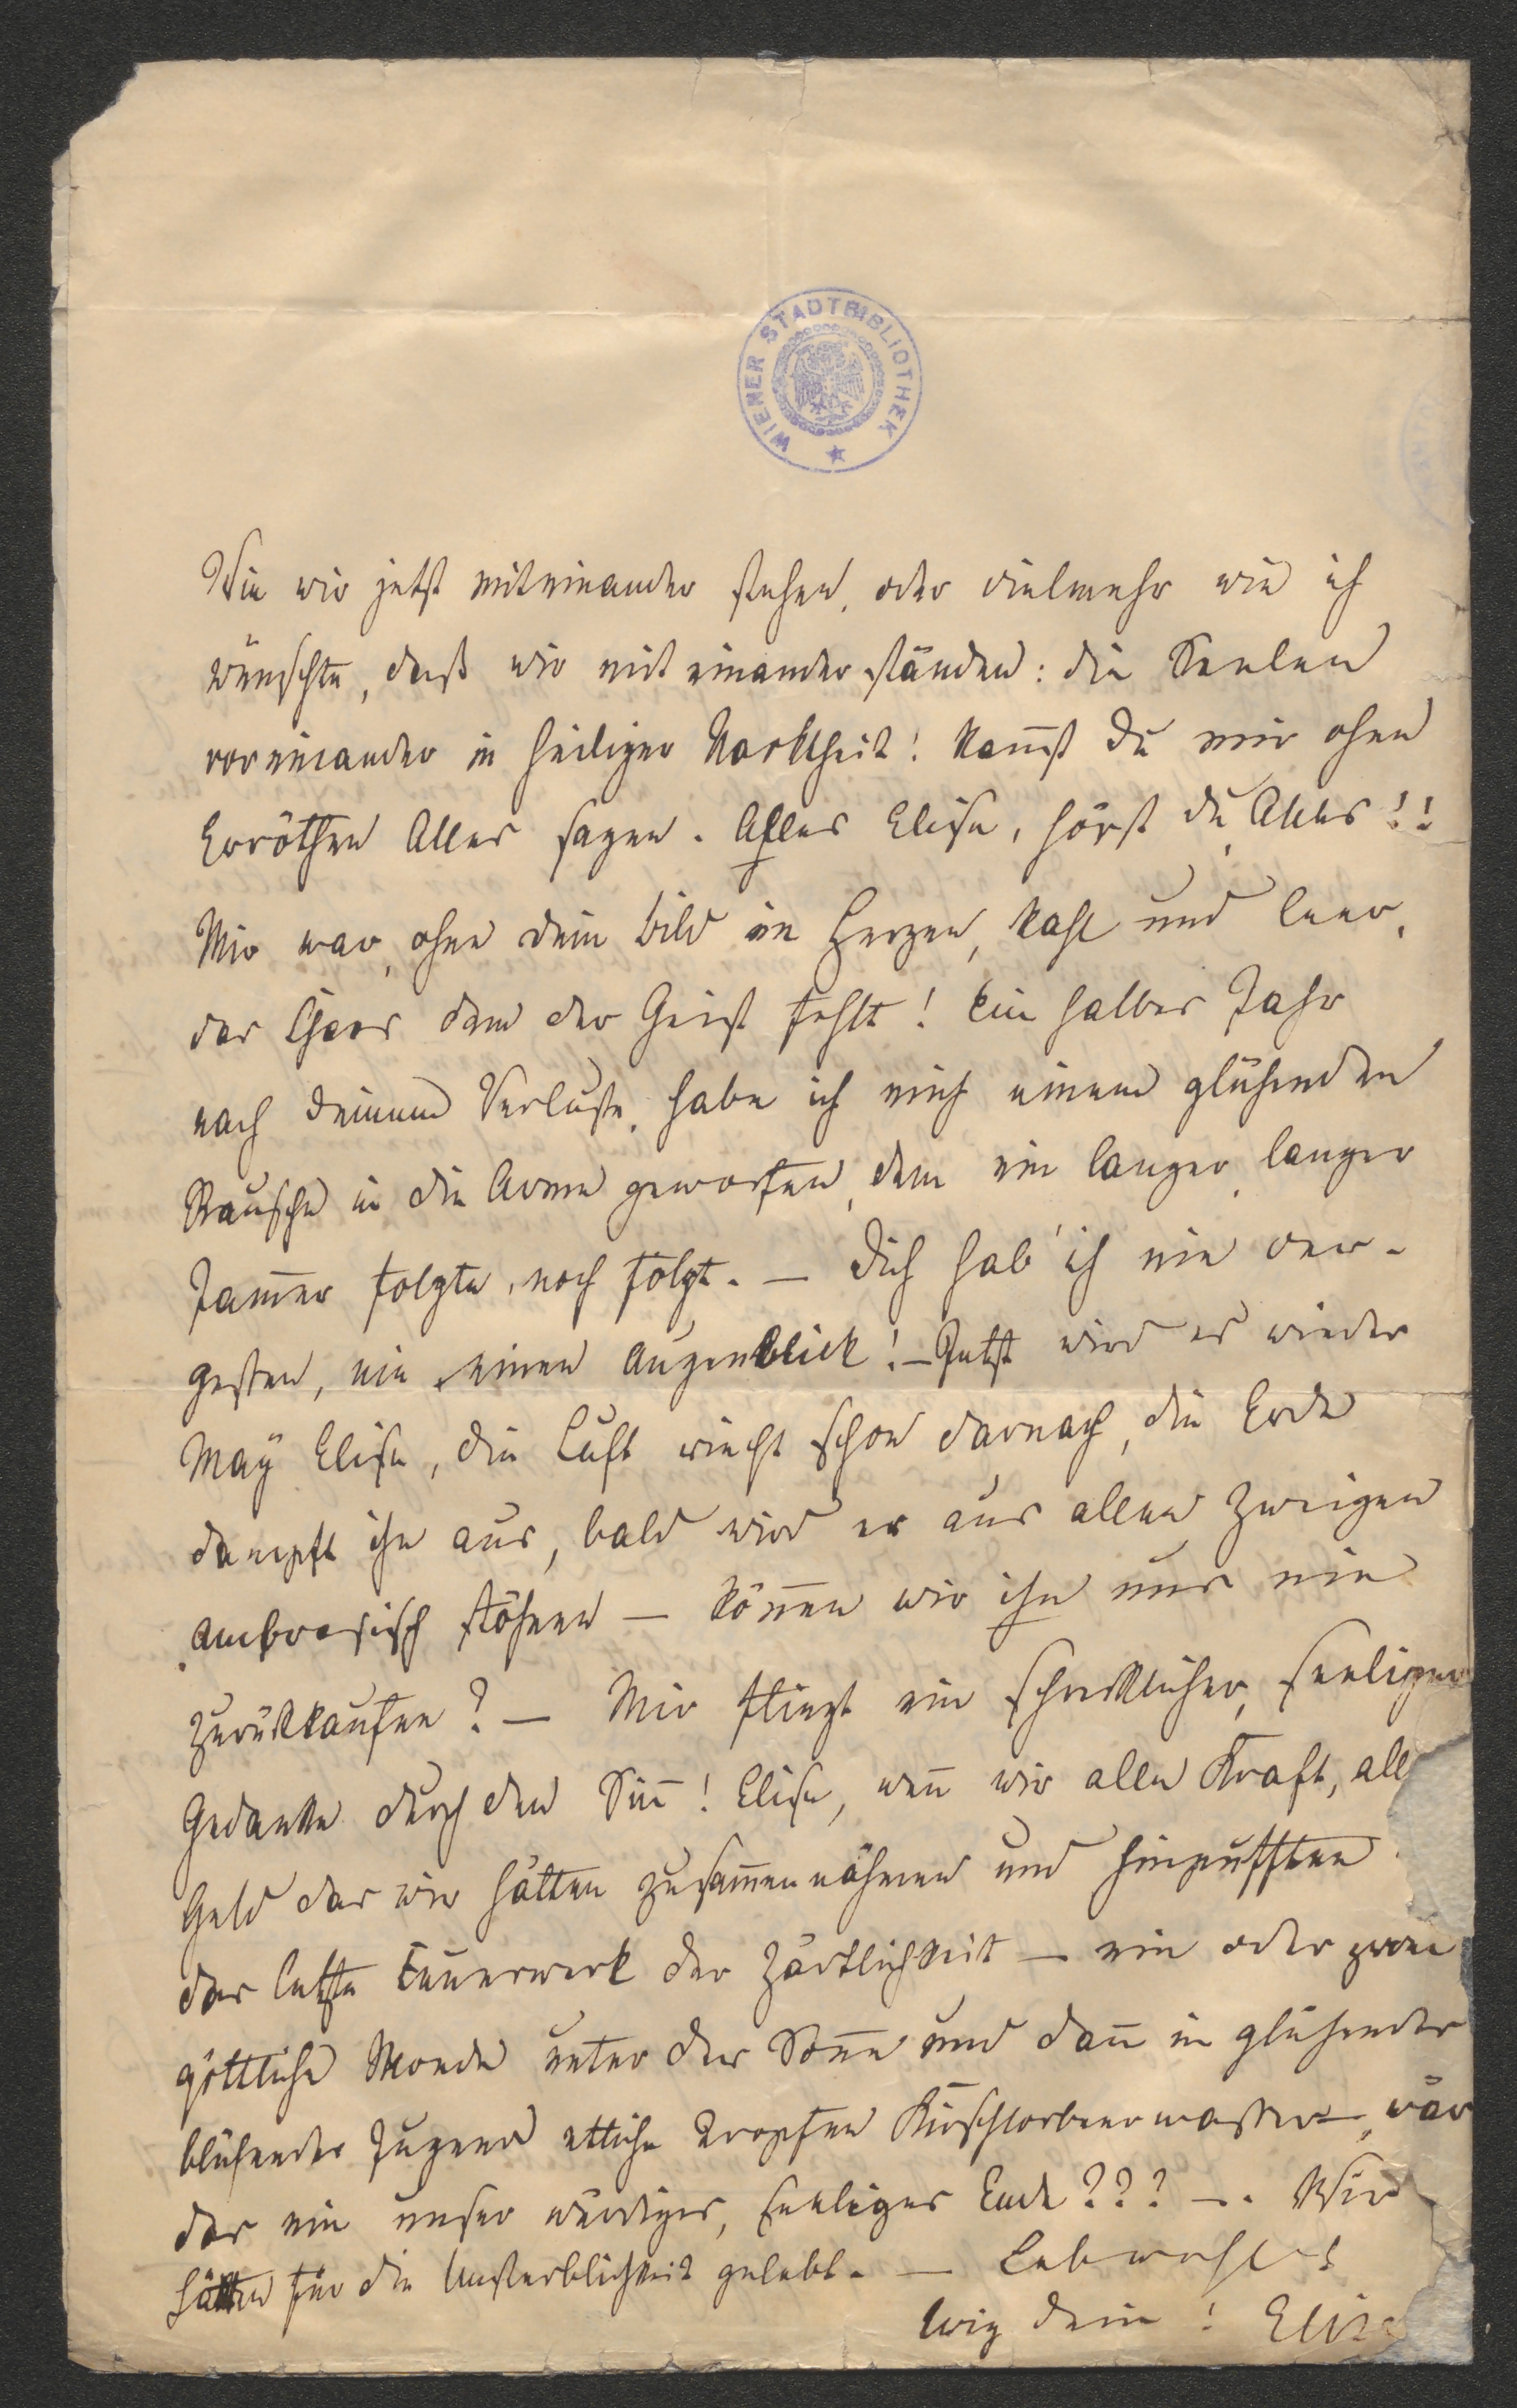 WIENER STADTBIBLIOTHEK
Wie wir jetzt miteinander stehen, oder vielmehr wie ich
wünschte, daß wir mit einander ständen: die Seelen
voreinander in heiliger Nacktheit! kannst du mir ohne
Erröthen Alles sagen. Alles Elise, hörst du, Alles!!
Mir war, ohne dein Bild im Herzen, kahl und leer,
das Chaos dem der Geist fehlt! Ein halbes Jahr
nach deinem Verluste, habe ich mich einem glühenden
Rausche in die Arme geworfen, dem ein langer, langer
Jam̅er folgte, noch folgt. — Dich hab' ich nie ver-
gessen, nie einen Augenblick! — Jetzt wird es wieder
May Elise, die Luft riecht schon darnach, die Erde
dampft ihn aus, bald wird er aus allen Zweigen
ambrosisch stöhnen — kön̅en wir ihn uns nie
zurückkaufen? — Mir fliegt ein schrecklicher, seeliger
Gedanke durch den Sin̅! Elise, wen̅ wir alle Kraft, all
Geld das wir hätten zusam̅en nähmen und hinpufften
das letzte Feuerwerk der Zärtlichkeit — ein oder zwei
göttliche Monde unter der Son̅e und dan̅ in glühender
blühender Jugend etliche Tropfen Kirschlorbeerwasser —, wär
das ein unser würdiges, seeliges Ende??? —. Wir
hätten für die Unsterblichkeit gelebt. — Lebwohl!
Ewig dein! Elise